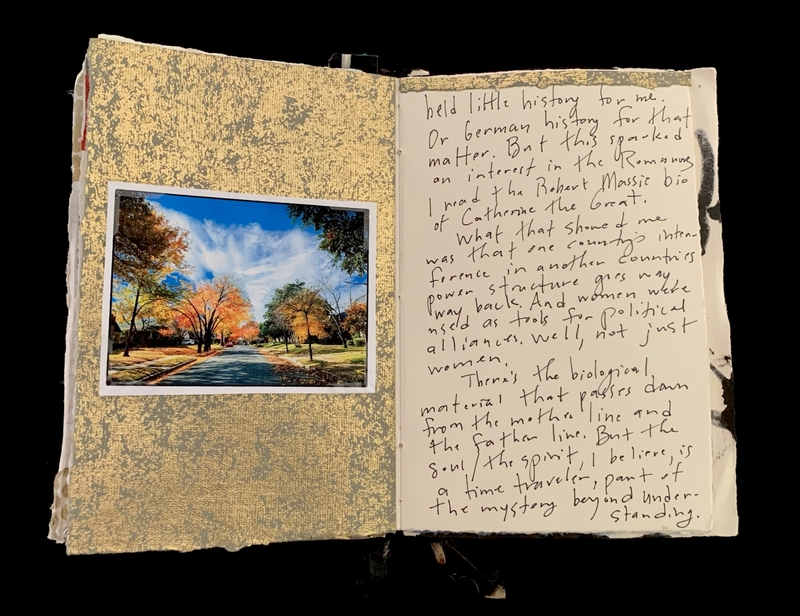 held little history for me.
Or German history for that
matter. But this sparked
an interest in the Romanovs
I read the Robert Massie bio
of Catherine the Great.
What that showed me
was that one country's inter-
ference in another countries
power structure goes way
way back. And women were
used as tools for political
alliances. Well, not just
women.
There's the biological
material that passes down
from the mother line and
the father line. But the
soul/the spirit, I believe, is
a time traveler, part of
the mystery beyond under-
standing.